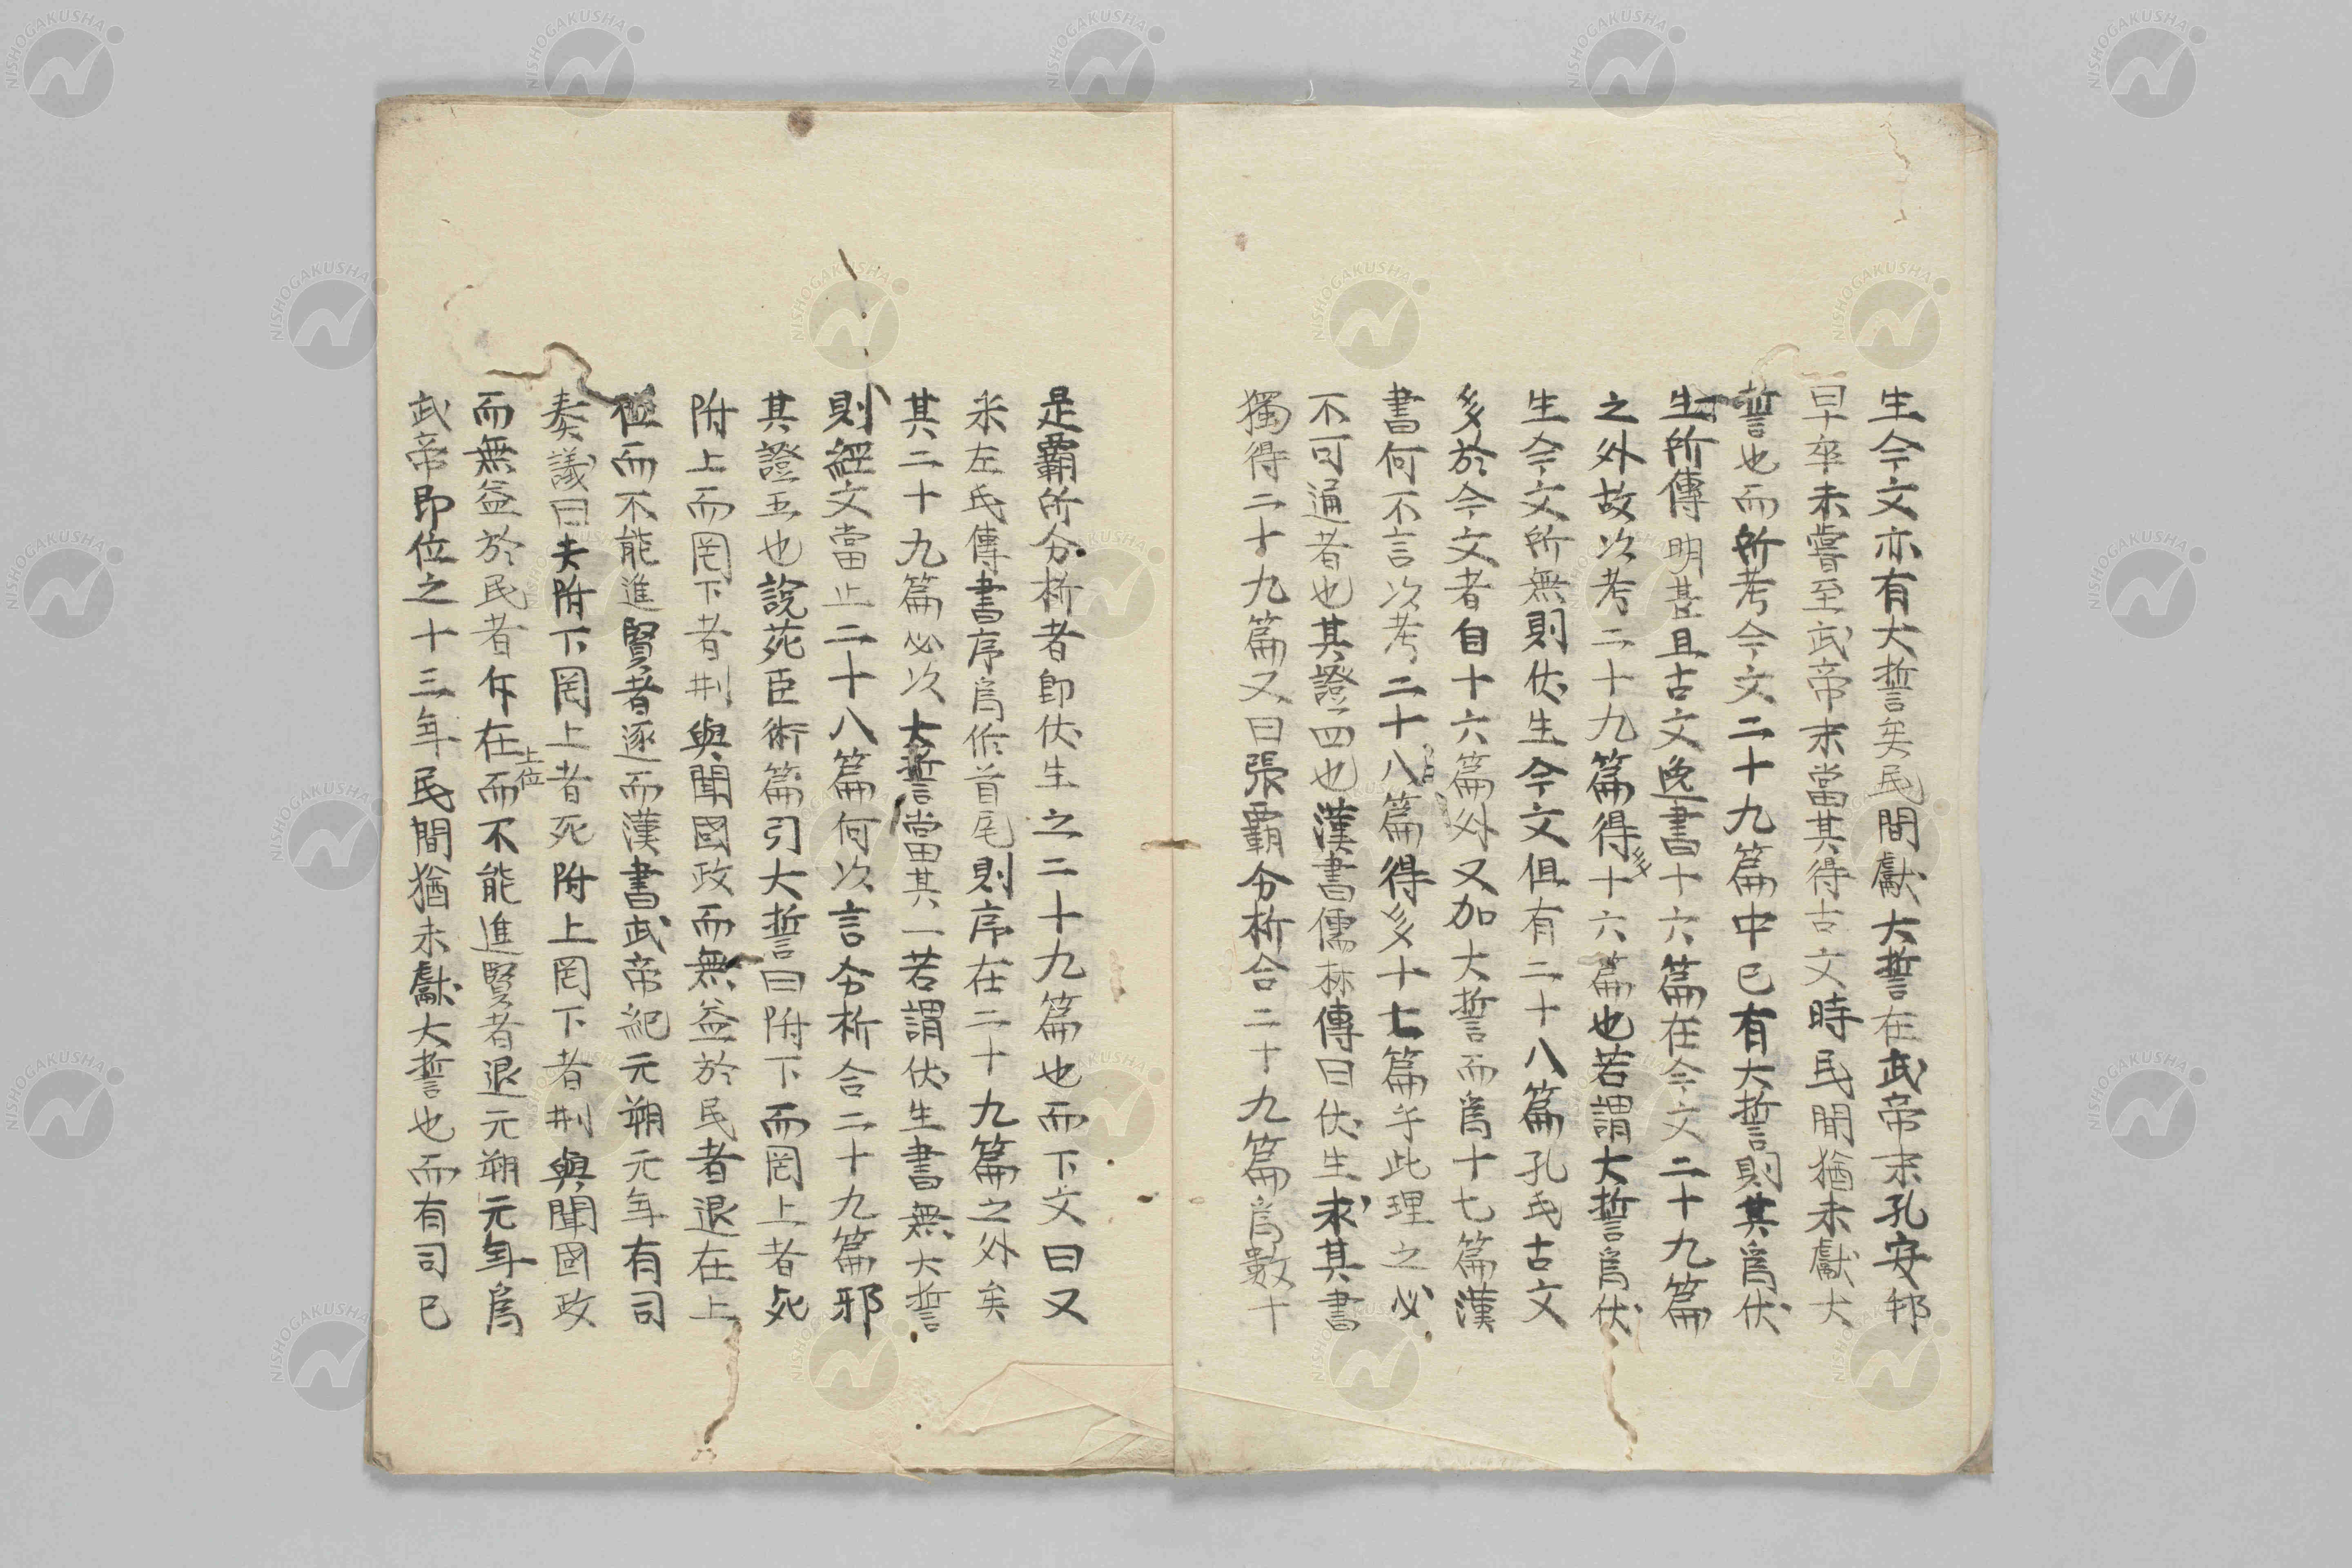 生今文亦有大誓矣民間獻大誓在武帝末孔安邦
早卒未嘗至武帝末當其得古文時民間猶未獻大
誓也而所考今文二十九篇中已有大誓則其爲伏
生所傳明甚且古文逸書十六篇在今文二十九篇
之外故次考二十九篇得多十六篇也若謂大誓爲伏
生今文所無則伏生今文但有二十八篇孔氏古文
多於今文者自十六篇外又加大誓而爲十七篇漢
書何不言次考二十八篇得多十七篇乎此理之必
不可通者也其證四也漢書儒林傳曰伏生求其書
獨得二十九篇又曰張霸分析合二十九篇爲數十
是霸所分析者即伏生之二十九篇也而下文曰又
采左氏傳書序爲作首尾則序在二十九篇之外矣
其二十九篇必次大誓當其一若謂伏生書無大誓
則經文當止二十八篇何次言分析合二十九篇邪
其證五也說苑臣術篇引大誓曰附下而罔上者死
附上而罔下者刑與聞國政而無益於民者退在上
位而不能進賢者逐而漢書武帝紀元朔元年有司
奏議曰夫附下罔上者死附上罔下者刑與聞國政
而無益於民者斥在上位而不能進賢者退元朔元年爲
武帝即位之十三年民間猶未獻大誓也而有司已
NISHOGAKUSHA